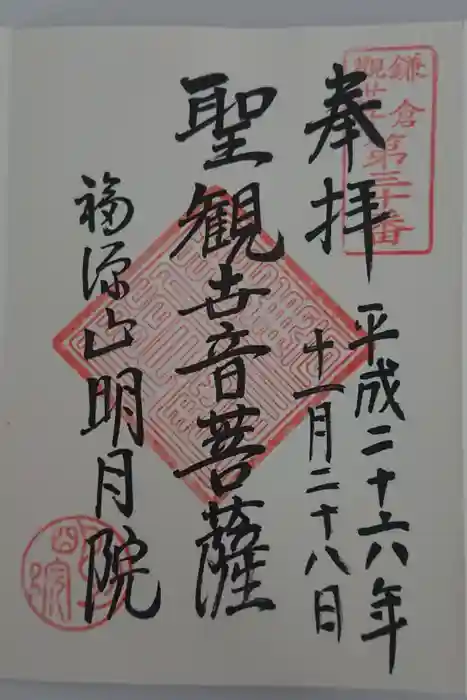 鎌倉
觀世音
第三十番
奉拝
平成二十六年
十一月二十八日
聖観世音菩薩
福源山明月院